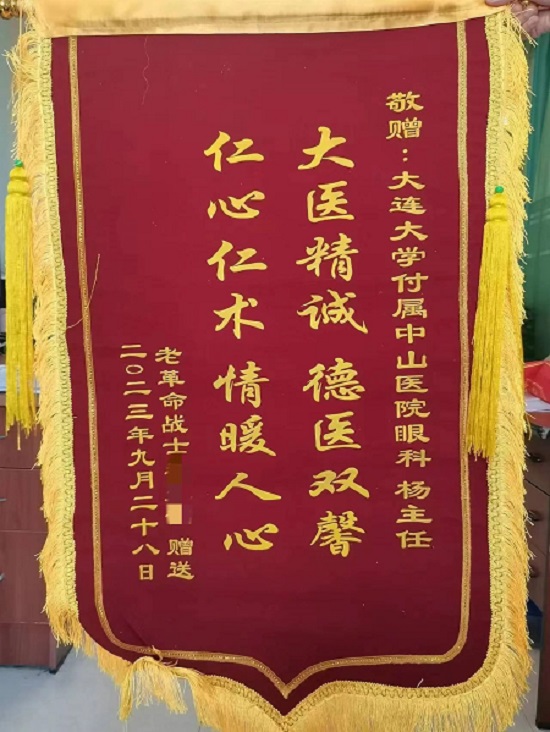 敬赠：大连大学付属中山医院眼科 杨主任
大医精诚 德医双馨
仁心仁术 情暖人心
老革命战士 赠送
二〇二三年九月二十八日